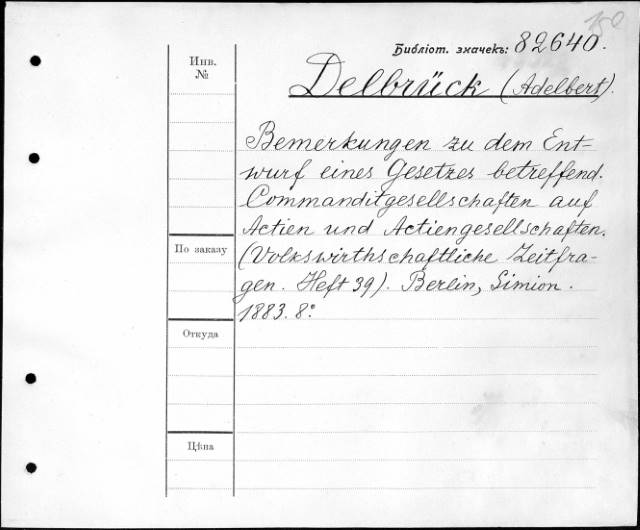 Библіот. значекъ: 82640.
Инв.
№
Delbrück (Adelbert).
Bemerkungen zu dem Ent=
wurf eines Gesetzes betreffend.
Commanditgesellschaften auf
Actien und Actiengesellschaften.
(Volkswirthschaftliche Zeitfra-
gen. Heft 39). Berlin, Simion.
1883. 8º
По заказу
Откуда
Цѣна